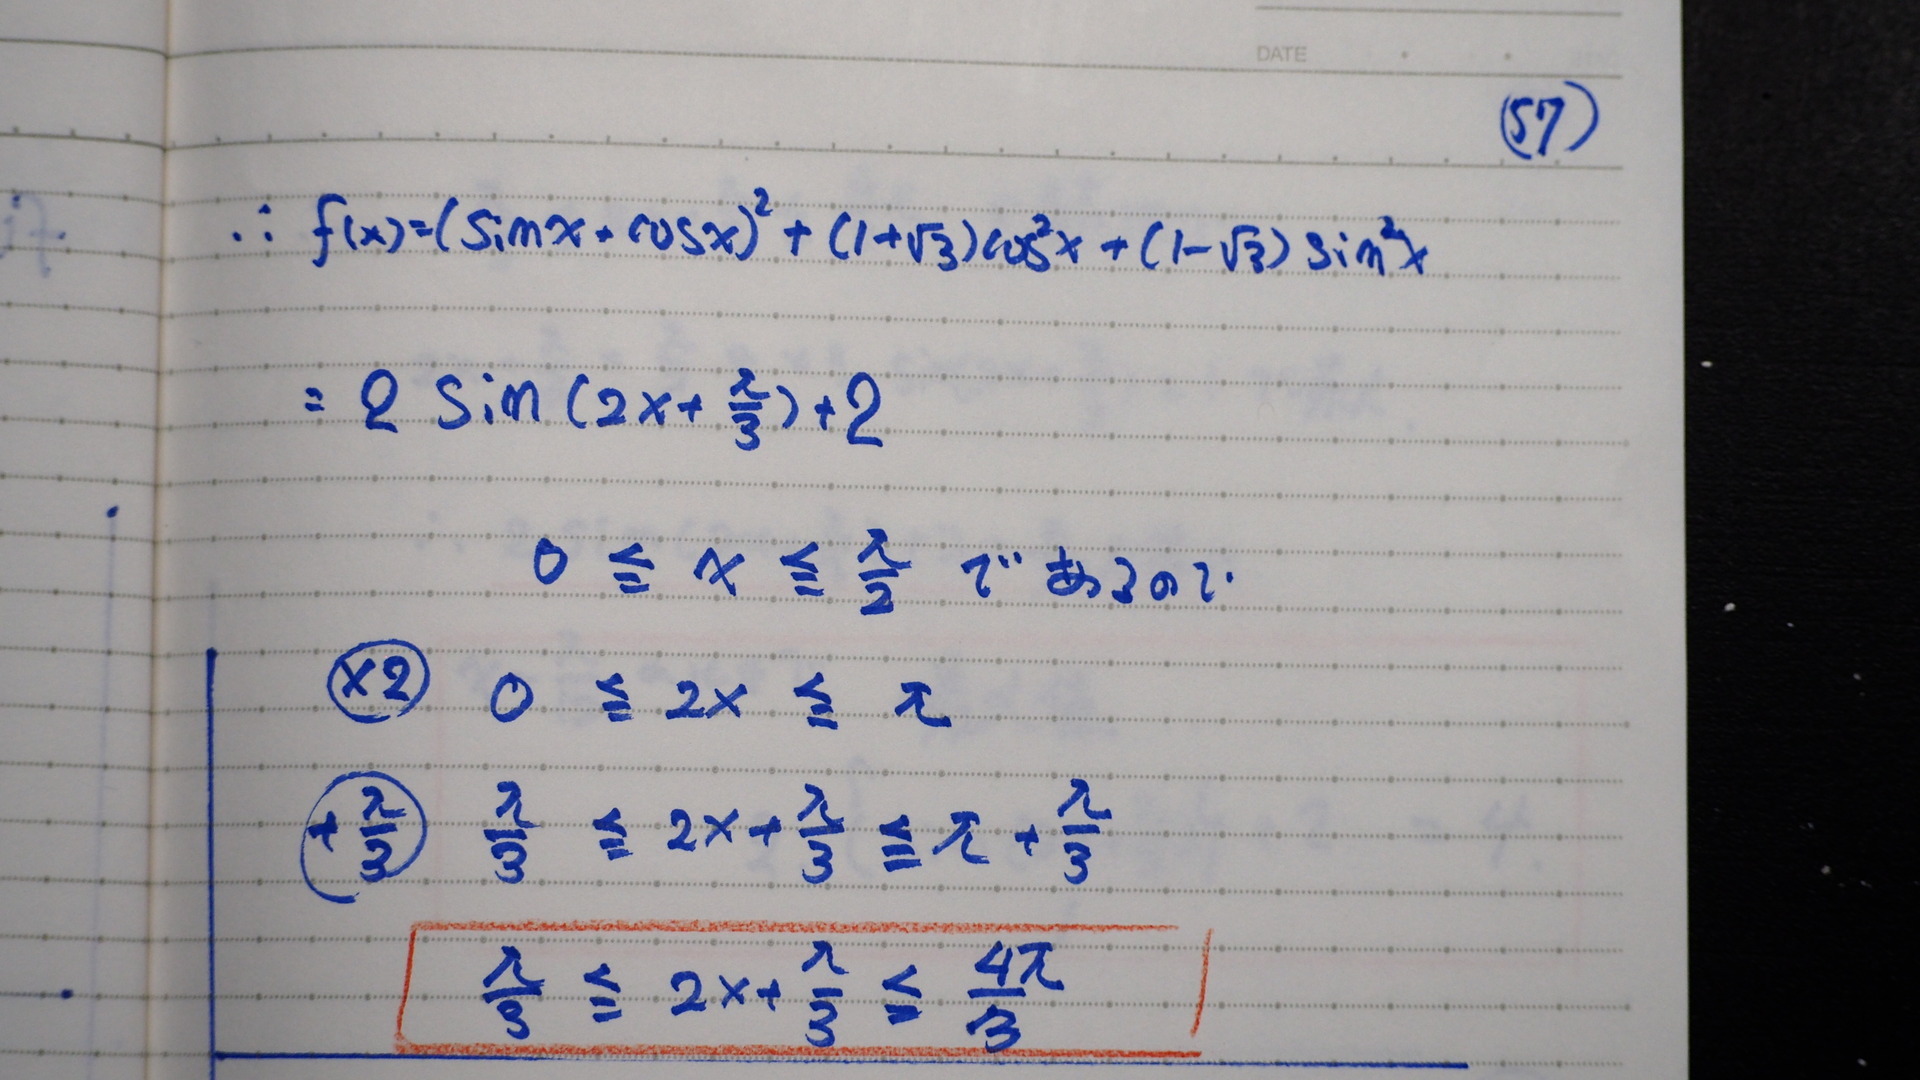 DATE
(57)
∴ f(x)=(sinx+cosx)²+(1+√3)cos²x+(1-√3)sin²x
= 2 sin(2x+π/3)+2
0 ≦ x ≦ π/2 であるので
×2 0 ≦ 2x ≦ π
+π/3 π/3 ≦ 2x+π/3 ≦ π+π/3
π/3 ≦ 2x+π/3 ≦ 4π/3